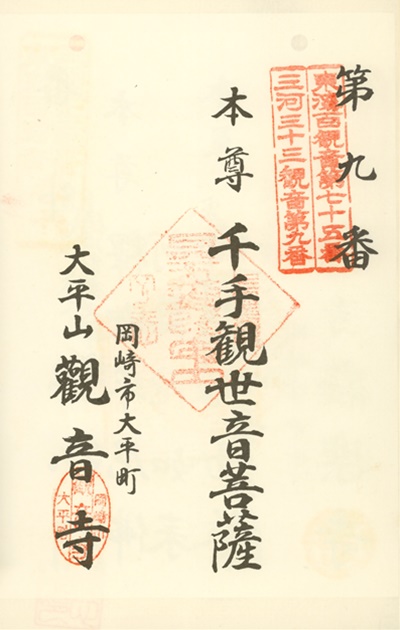 第九番
東海百観音第七十五番
三河三十三観音第九番
本尊 千手観世音菩薩
岡崎市大平町
大平山 觀音寺